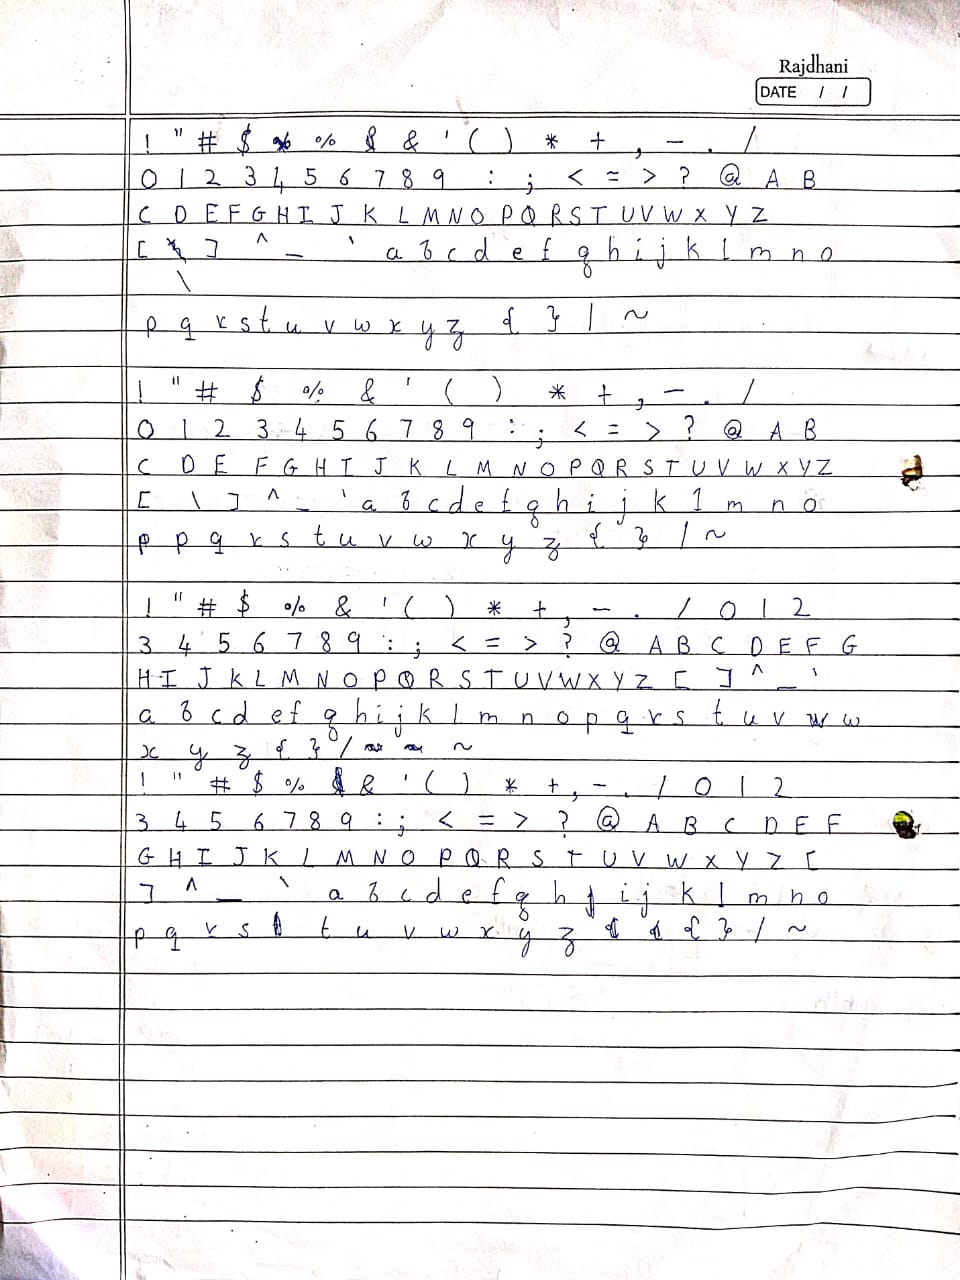 Rajdhani
DATE / /
! " # $ % & ' ( ) * + , - . /
0 1 2 3 4 5 6 7 8 9 : ; < = > ? @ A B
C D E F G H I J K L M N O P Q R S T U V W X Y Z
[ ] ^ _ ` a b c d e f g h i j k l m n o
\
p q r s t u v w x y z { } | ~
! " # $ % & ' ( ) * + , - . /
0 1 2 3 4 5 6 7 8 9 : ; < = > ? @ A B
C D E F G H I J K L M N O P Q R S T U V W X Y Z
[ \ ] ^ _ ` a b c d e f g h i j k l m n o
p p q r s t u v w x y z { } | ~
! " # $ % & ' ( ) * + , - . / 0 1 2
3 4 5 6 7 8 9 : ; < = > ? @ A B C D E F G
H I J K L M N O P Q R S T U V W X Y Z [ ] ^ _ `
a b c d e f g h i j k l m n o p q r s t u v w
x y z { } / ~
! " # $ % & ' ( ) * + , - . / 0 1 2
3 4 5 6 7 8 9 : ; < = > ? @ A B C D E F
G H I J K L M N O P Q R S T U V W X Y Z [
] ^ _ ` a b c d e f g h i j k l m n o
p q r s t u v w x y z { } / ~